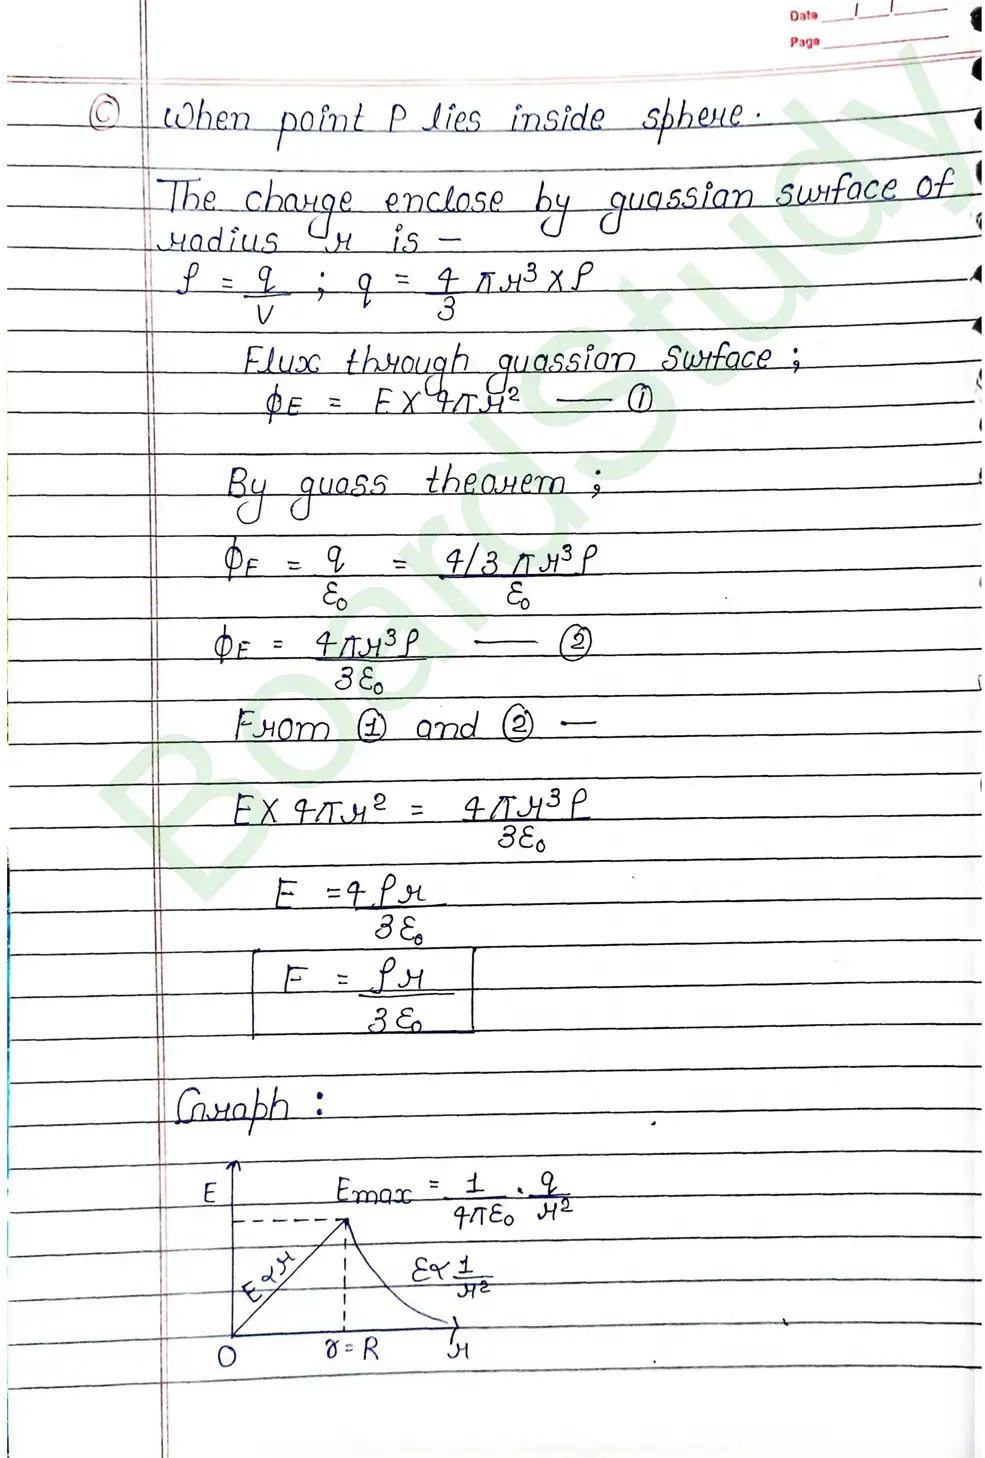 Date / /
Page
Ⓒ When point P lies inside sphere.
The charge enclose by guassian surface of
radius r is –
ρ = q/V ; q = 4/3 πr³ × ρ
Flux through guassian surface ;
ϕE = E × 4πr² —— ①
By guass theorem ;
ϕE = q/ε₀ = 4/3 πr³ρ/ε₀
ϕE = 4πr³ρ/3ε₀ —— ②
From ① and ② —
E × 4πr² = 4πr³ρ/3ε₀
E = 4ρr/3ε₀
E = ρr/3ε₀
Graph :
E
Emax = 1/4πε₀ . q/r²
E ∝ r
E ∝ 1/r²
O
r = R
r
BoardStudy